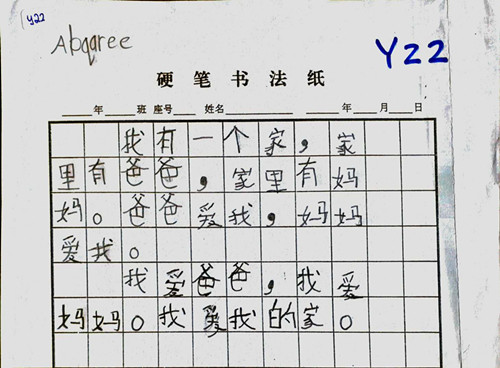 Y22
Abqaree
Y22
硬笔书法纸
年 班 座号 姓名 年 月 日
我有一个家，家
里有爸爸，家里有妈
妈。爸爸爱我，妈妈
爱我。
我爱爸爸，我爱
妈妈。我爱我的家。